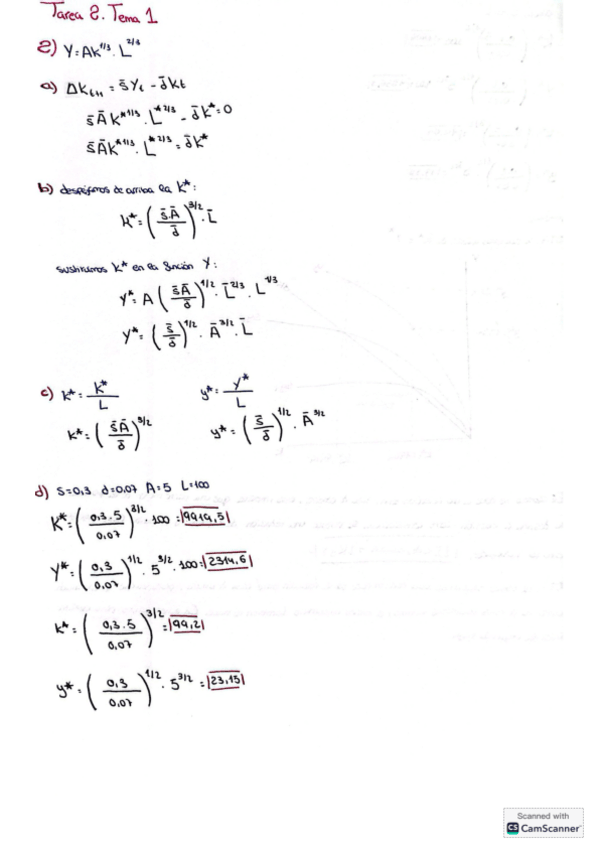 Tarea 2. Tema 1
2) Y = AK^1/3 · L^2/3
a) ΔK_t+1 = s̄Y_t - d̄K_t
s̄ Ā K*^1/3 · L*^2/3 - d̄K* = 0
s̄ĀK*^1/3 · L*^2/3 = d̄K*
b) despejamos de arriba la K*:
K* = (s̄.Ā / d̄)^3/2 · L̄
sustituimos K* en la función Y:
Y* = A (s̄Ā / d̄)^1/2 · L̄^2/3 · L^1/3
Y* = (s̄ / d̄)^1/2 · Ā^3/2 · L̄
c) k* = K* / L     y* = Y* / L
k* = (s̄Ā / d̄)^3/2     y* = (s̄ / d̄)^1/2 · Ā^3/2
d) s=0,3 d=0,07 A=5 L=100
K* = (0,3·5 / 0,07)^3/2 · 100 = |9919,5|
Y* = (0,3 / 0,07)^1/2 · 5^3/2 · 100 = |2314,6|
k* = (0,3·5 / 0,07)^3/2 = |99,2|
y* = (0,3 / 0,07)^1/2 · 5^3/2 = |23,15|
Scanned with
CS CamScanner